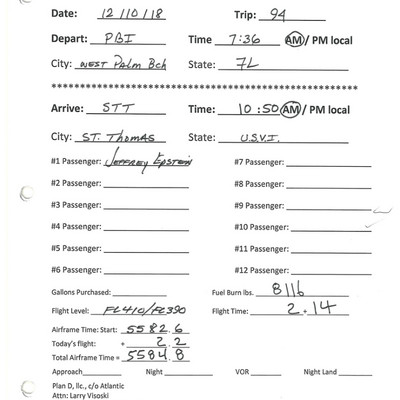 Date: 12/10/18 Trip: 94
Depart: PBI Time 7:36 AM / PM local
City: WEST Palm Bch State: FL
************************************************************
Arrive: STT Time: 10:50 AM / PM local
City: ST. THOMAS State: U.S.V.I.
#1 Passenger: JEFFREY EPSTEIN #7 Passenger:
#2 Passenger: #8 Passenger:
#3 Passenger: #9 Passenger:
#4 Passenger: #10 Passenger:
#5 Passenger: #11 Passenger:
#6 Passenger: #12 Passenger:
Gallons Purchased: Fuel Burn lbs. 8116
Flight Level: FL410/FL390 Flight Time: 2+14
Airframe Time: Start: 5582.6
Today's flight: = 2.2
Total Airframe Time = 5584.8
Approach Night VOR Night Land
Plan D, llc., c/o Atlantic
Attn: Larry Visoski